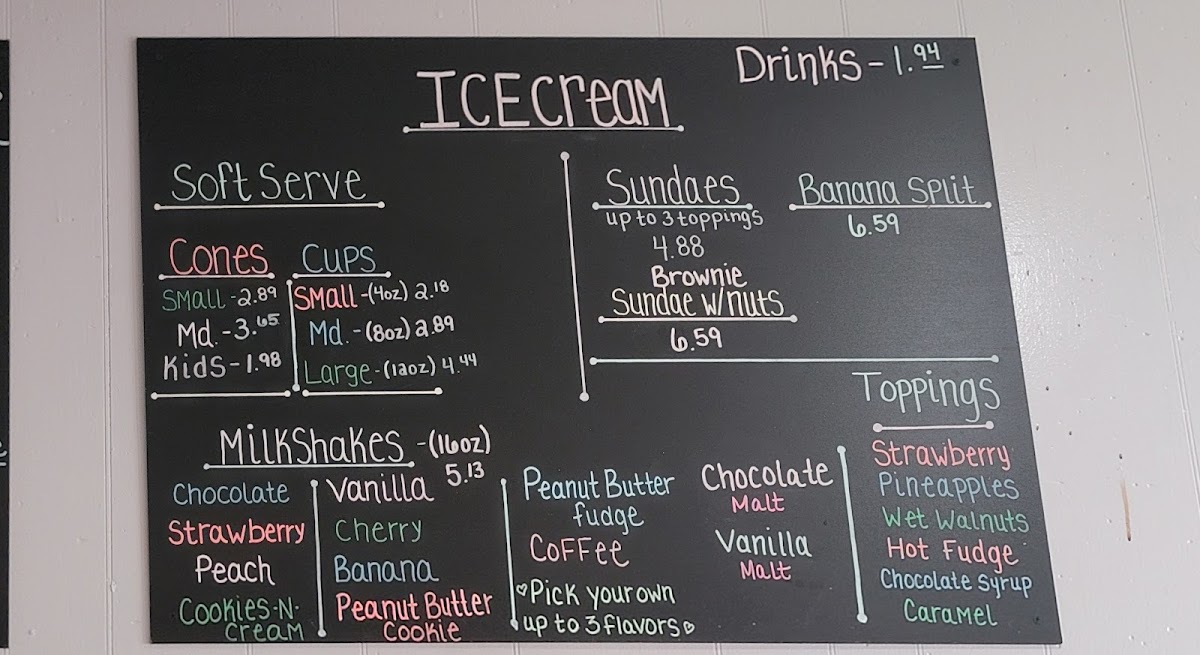 Drinks - 1.94
ICECream
Soft Serve
Cones
Small - 2.89
Md. - 3.65
Kids - 1.98
Cups
Small - (4oz) 2.18
Md. - (8oz) 2.89
Large - (12oz) 4.44
Sundaes
up to 3 toppings
4.88
Brownie
Sundae w/nuts
6.59
Banana Split
6.59
MilkShakes - (16oz)
5.13
Chocolate
Strawberry
Peach
Cookies-N-
Cream
Vanilla
Cherry
Banana
Peanut Butter
Cookie
Peanut Butter
fudge
Coffee
♡Pick your own
up to 3 flavors♡
Chocolate
Malt
Vanilla
Malt
Toppings
Strawberry
Pineapples
Wet Walnuts
Hot Fudge
Chocolate Syrup
Caramel